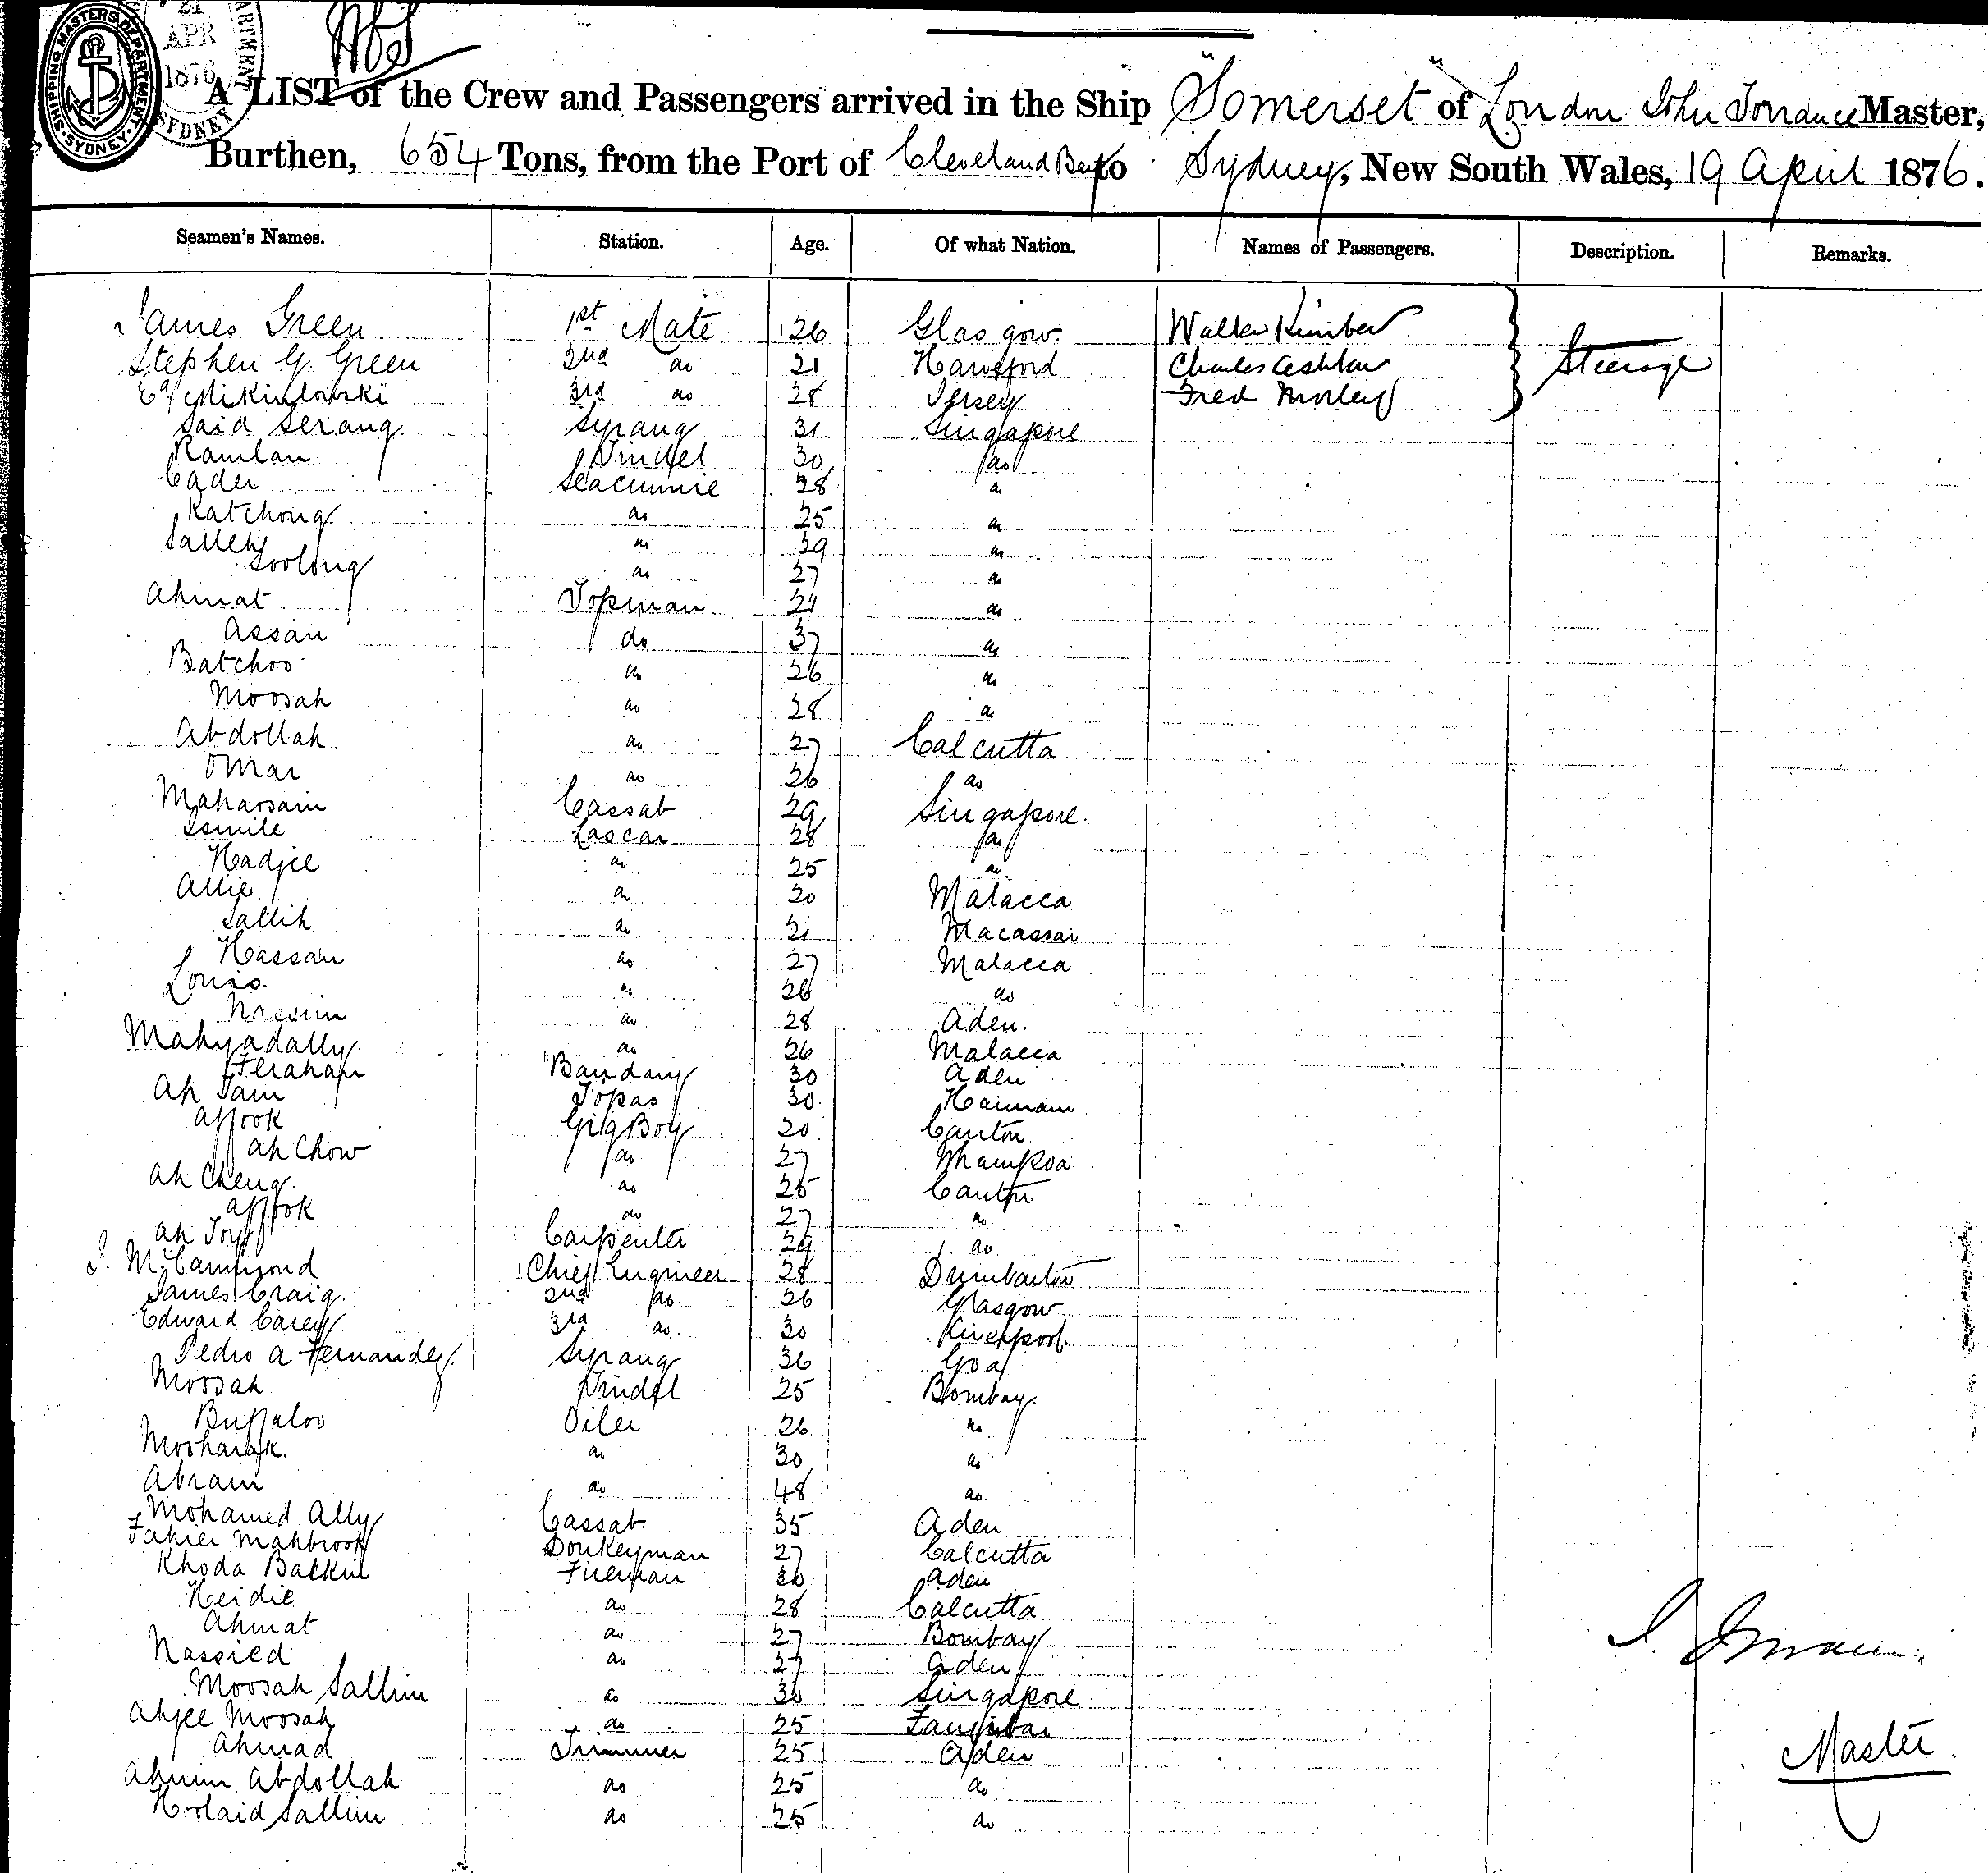 SHIPPING MASTERS DEPARTMENT SYDNEY
21 APR 1876
SYDNEY
A LIST of the Crew and Passengers arrived in the Ship Somerset of London John Torrance Master,
Burthen, 654 Tons, from the Port of Cleveland Bay to Sydney, New South Wales, 19 April 1876.
Seamen's Names. Station. Age. Of what Nation. Names of Passengers. Description. Remarks.
James Green 1st Mate 26 Glasgow Walter Kimber
Stephen G. Green 2nd do 21 Charles Ashton Steerage
3rd do 28 Jersey Fred Morley
Said Serang Syrang 31 Singapore
Ramlan Tindel 30 do
Cader Seacunnie 28 do
Katchong do 25 do
Salleh do 29 do
Soolong do 27 do
Ahmat Topman 24 do
Assan do 37 do
Batchoo do 26 do
Moosah do 28 do
Abdollah do 27 Calcutta
Omar do 26 do
Maharsain Cassab 29 Singapore
Ismile Lascar 28 do
Hadjee do 25 do
Allie do 20 Malacca
Sallih do 21 Macassar
Hassan do 27 Malacca
Louis do 26 do
Nassim do 28 Aden
Mahyadally do 26 Malacca
Ferahan Bandary 30 Aden
Ah Sam Topas 30 Hainam
Affook Gig Boy 20 Canton
Ah Chow do 27 Whampoa
Ah Cheng do 25 Canton
Affook do 27 do
Ah Joy Carpenter 29 do
J. McCammond Chief Engineer 28 Dumbarton
James Craig 2nd do 26 Glasgow
Edward Carey 3rd do 30 Liverpool
Pedro A Fernandez Syrang 36 Goa
Moosah Tindel 25 Bombay
Buffaloo Oiler 26 do
Mosharak do 30 do
Abram do 48 do
Mohamed Ally Cassab 35 Aden
Fahier Mahbrook Donkeyman 27 Calcutta
Khoda Backin Fireman 30 Aden
Heidie do 28 Calcutta
Ahmat do 27 Bombay
Nassied do 27 Aden
Moosah Sallim do 30 Singapore
Ahjee Moosah do 25 Zanzibar
Ahmad Trimmer 25 Aden
Ahmin Abdollah do 25 do
Sallim do 25 do
J. Torrance
Master